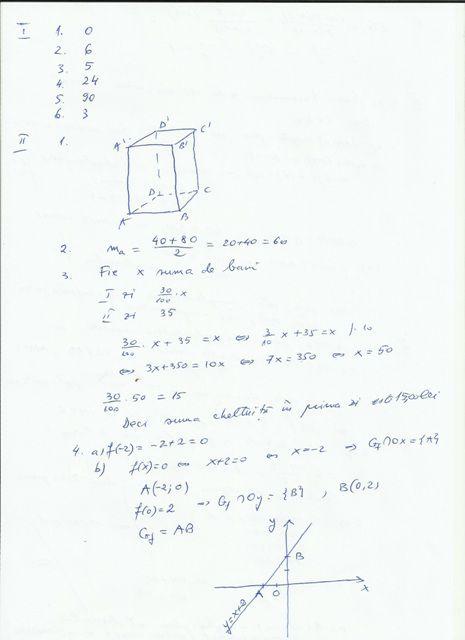 I 1. 0
2. 6
3. 5
4. 24
5. 90
6. 3
II 1.
D' C'
A' B'
D C
A B
2. ma = (40+80)/2 = 20+40 = 60
3. Fie x suma de bani
I zi 30/100 · x
II zi 35
30/100 · x + 35 = x ⇔ 3/10 x + 35 = x /· 10
⇔ 3x+350 = 10x ⇔ 7x = 350 ⇔ x = 50
30/100 · 50 = 15
Deci suma cheltuită în prima zi e 15 lei
4. a) f(-2) = -2+2 = 0
b) f(x)=0 ⇔ x+2=0 ⇔ x=-2 ⇒ Gf ∩ Ox = {A}
A(-2;0)
f(0)=2 ⇒ Gf ∩ Oy = {B} , B(0,2)
Gf = AB
y
B
A O x
y=x+2